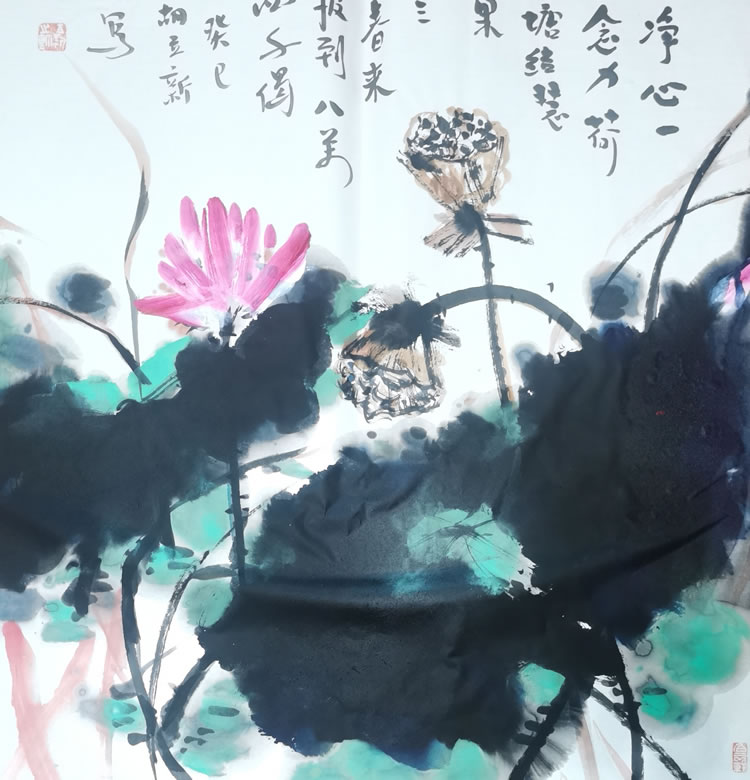 净心一
念力荷
塘结慧
果
三
春来
报到八万
四千偈
癸巳
胡立新
写